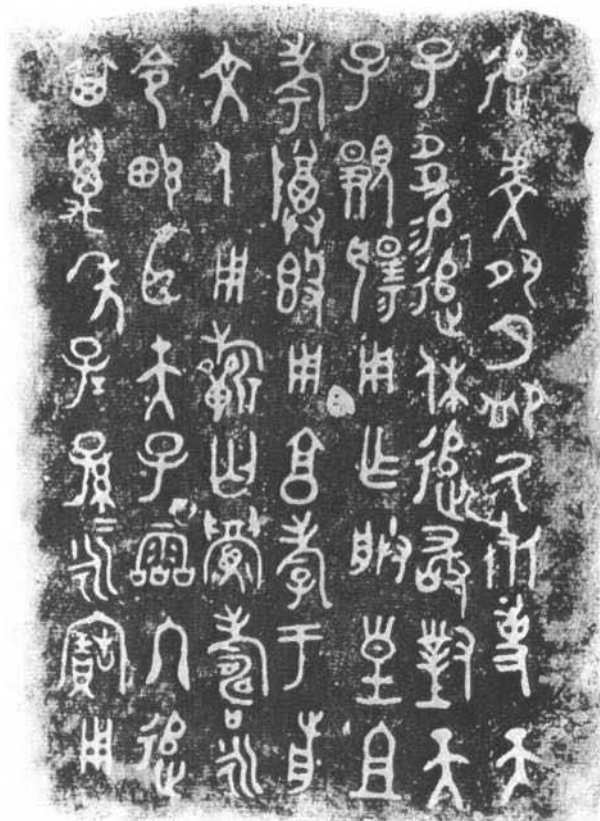 追虔夙夕卹氒死事天
子多易追休追敢對天
子覭揚用乍朕皇且
考尊𣪘用亯孝于前
文人用𣄨匃眉壽永
令畯臣天子霝冬追
其萬年子〓孫〓永寶用